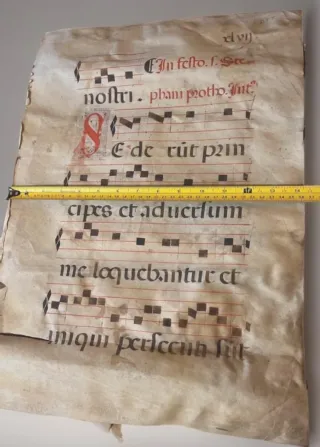 xlvij
In festo. s. Ste-
nostri. phani protho. Int.
SEderūt prin
cipes et aduersum
me loquebantur et
iniqui persecuti sūt